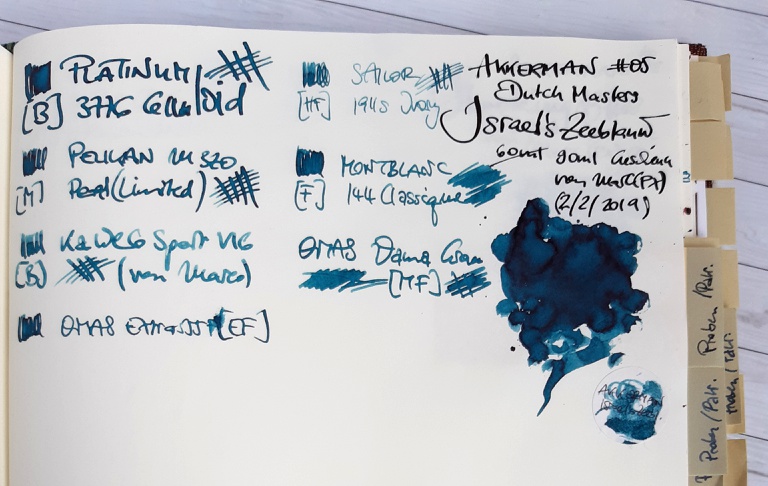 PLATINUM
[B] 3776 Celluloid
PELIKAN M 320
[M] Pearl (Limited)
KaWeCo Sport V16
[B] (von Marco)
OMAS [EF]
SAILOR
[HF] 1911s Ivory
MONTBLANC
[F] 144 Classique
OMAS Dama
[MF]
AKKERMAN #05
Dutch Masters
Israel's Zeeblauw
60ml
von
(2/2/2019)
AKKERMAN
Proben / Patr.
Proben / Patr.